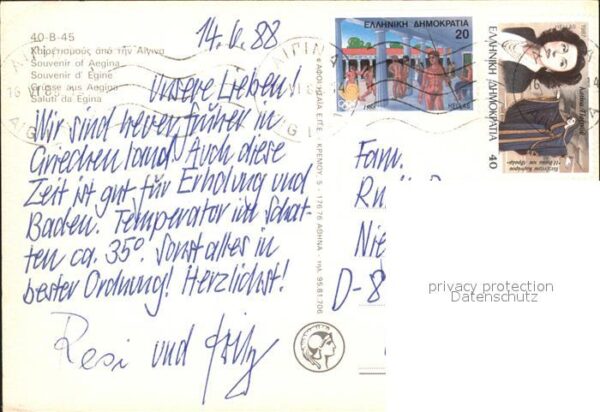 40-B-45
Χαιρετισμούς ἀπό τήν Αἴγινα
Souvenir of Aegina
Souvenir d' Egine
Grüsse aus Aegina
Saluti da Egina
14.6.88
Unsere Lieben!
Wir sind heuer früher in
Griechenland. Auch diese
Zeit ist gut für Erholung und
Baden. Temperatur im Schat-
ten ca. 35°. Sonst alles in
bester Ordnung! Herzlichst!
Resi und Fritz
ΚΡΕΜΟΥ 5 - 176 76 ΑΘΗΝΑ - ΤΗΛ. 95.81.706
ΕΛΛΗΝΙΚΗ ΔΗΜΟΚΡΑΤΙΑ
20
HELLAS
ΕΛΛΗΝΙΚΗ ΔΗΜΟΚΡΑΤΙΑ 40
ΑΙΓΙΝΑ
Fam.
Nie
D-8
privacy protection
Datenschutz